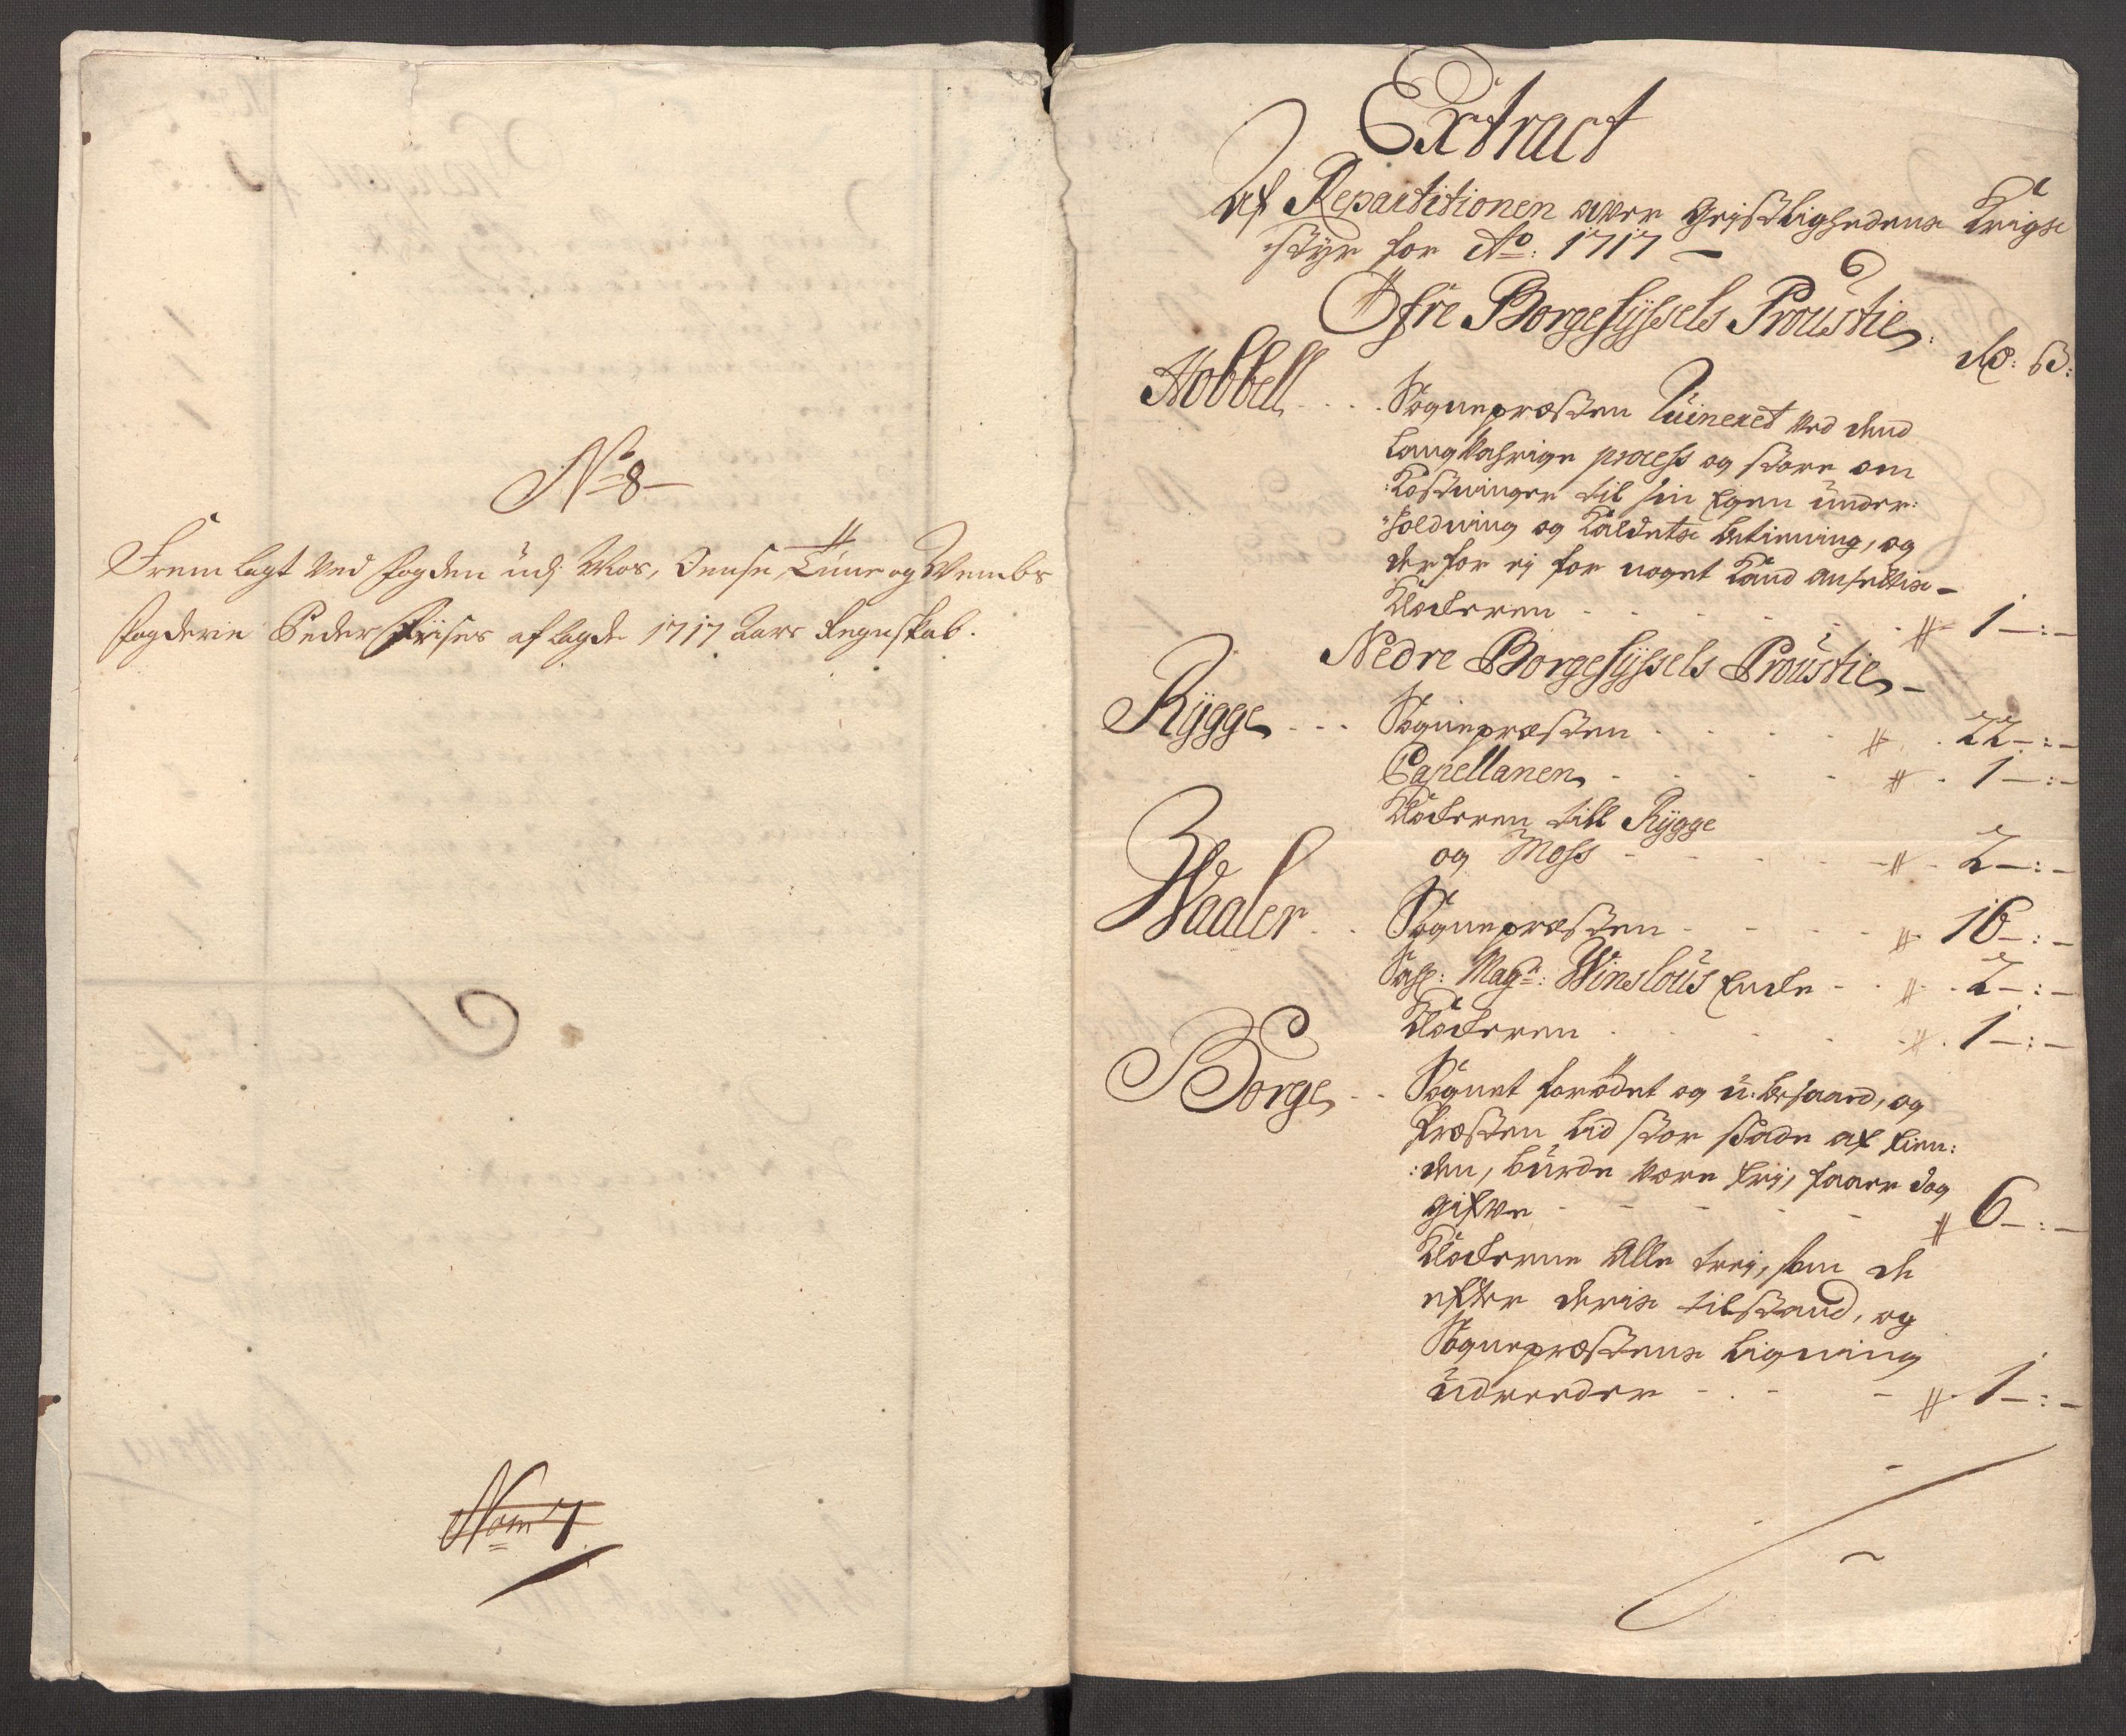 No 8
Fremlagt ved fogden udj Mos, Onsøe, Tuune og Wembe
fogderie Peder Friises aflagde 1717 Aars Regnskab.
Nom 7
Extract
Af Repartitionen over Geistlighedens Krigs
styr for Ao: 1717
Øfre Borgesyssels Proustie
dlr: ß:
Hobbell - - Sognepræsten Ruineret ved dend
langvahrige process og store om
kostninger til sin Egen under:
holdning og Kaldets betiening, og
derfor ej for noget kand ansettis
Klockeren - - 1 - : -
Nedre Borgesyssels Proustie
Rygge - - - Sognepræsten - - 22 - : -
Capellanen - - 1 - : -
Klockeren till Rygge
og Moss - - 2 - : -
Waaler - - Sognepræsten - - 16 - : -
Sahl: Magr: Winslous Encke - - 2 - : -
Klockeren - - 1 - : -
Borge - - Sognet forødet og u-besaaed, og
Præsten lid stor skade af fien:
:den, burde være frj, faaer dog
gifve - - 6 - : -
Klockerne Alle trej, som de
efter deris tilstand, og
Sognepræstens ligning
udreeder - - 1 - : -